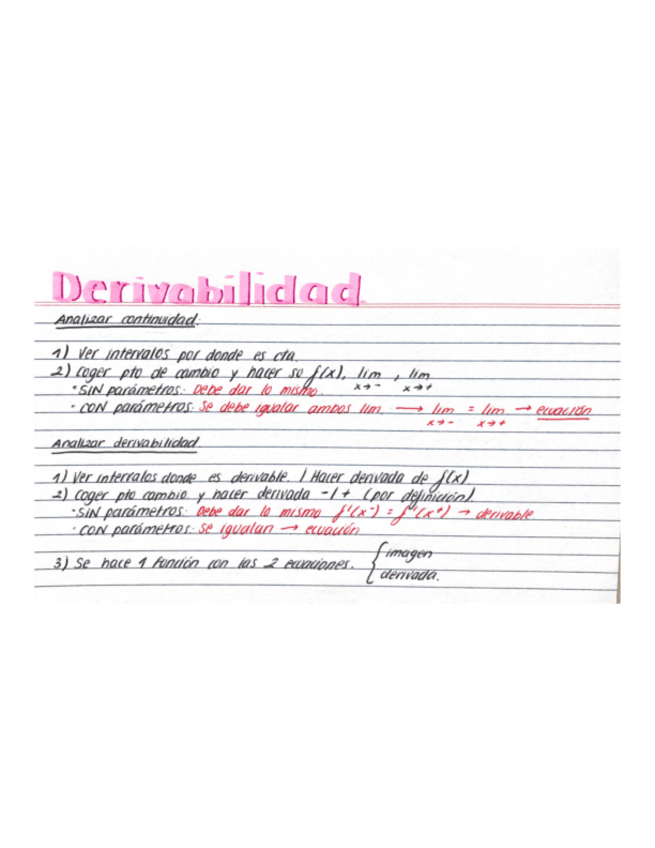 Derivabilidad.
Analizar continuidad:
1) Ver intervalos por donde es cta.
2) Coger pto de cambio y hacer su f(x), lim x→- , lim x→+
· SIN parámetros: Debe dar lo mismo.
· CON parámetros: Se debe igualar ambos lim. → lim x→- = lim x→+ → ecuación
Analizar derivabilidad.
1) Ver intervalos donde es derivable. / Hacer derivada de f(x)
2) Coger pto cambio y hacer derivada -/+ (por definición).
· SIN parámetros: Debe dar lo mismo f'(x⁻) = f'(x⁺) → derivable.
· CON parámetros: Se igualan → ecuación
3) Se hace 1 función con las 2 ecuaciones. { imagen
derivada.